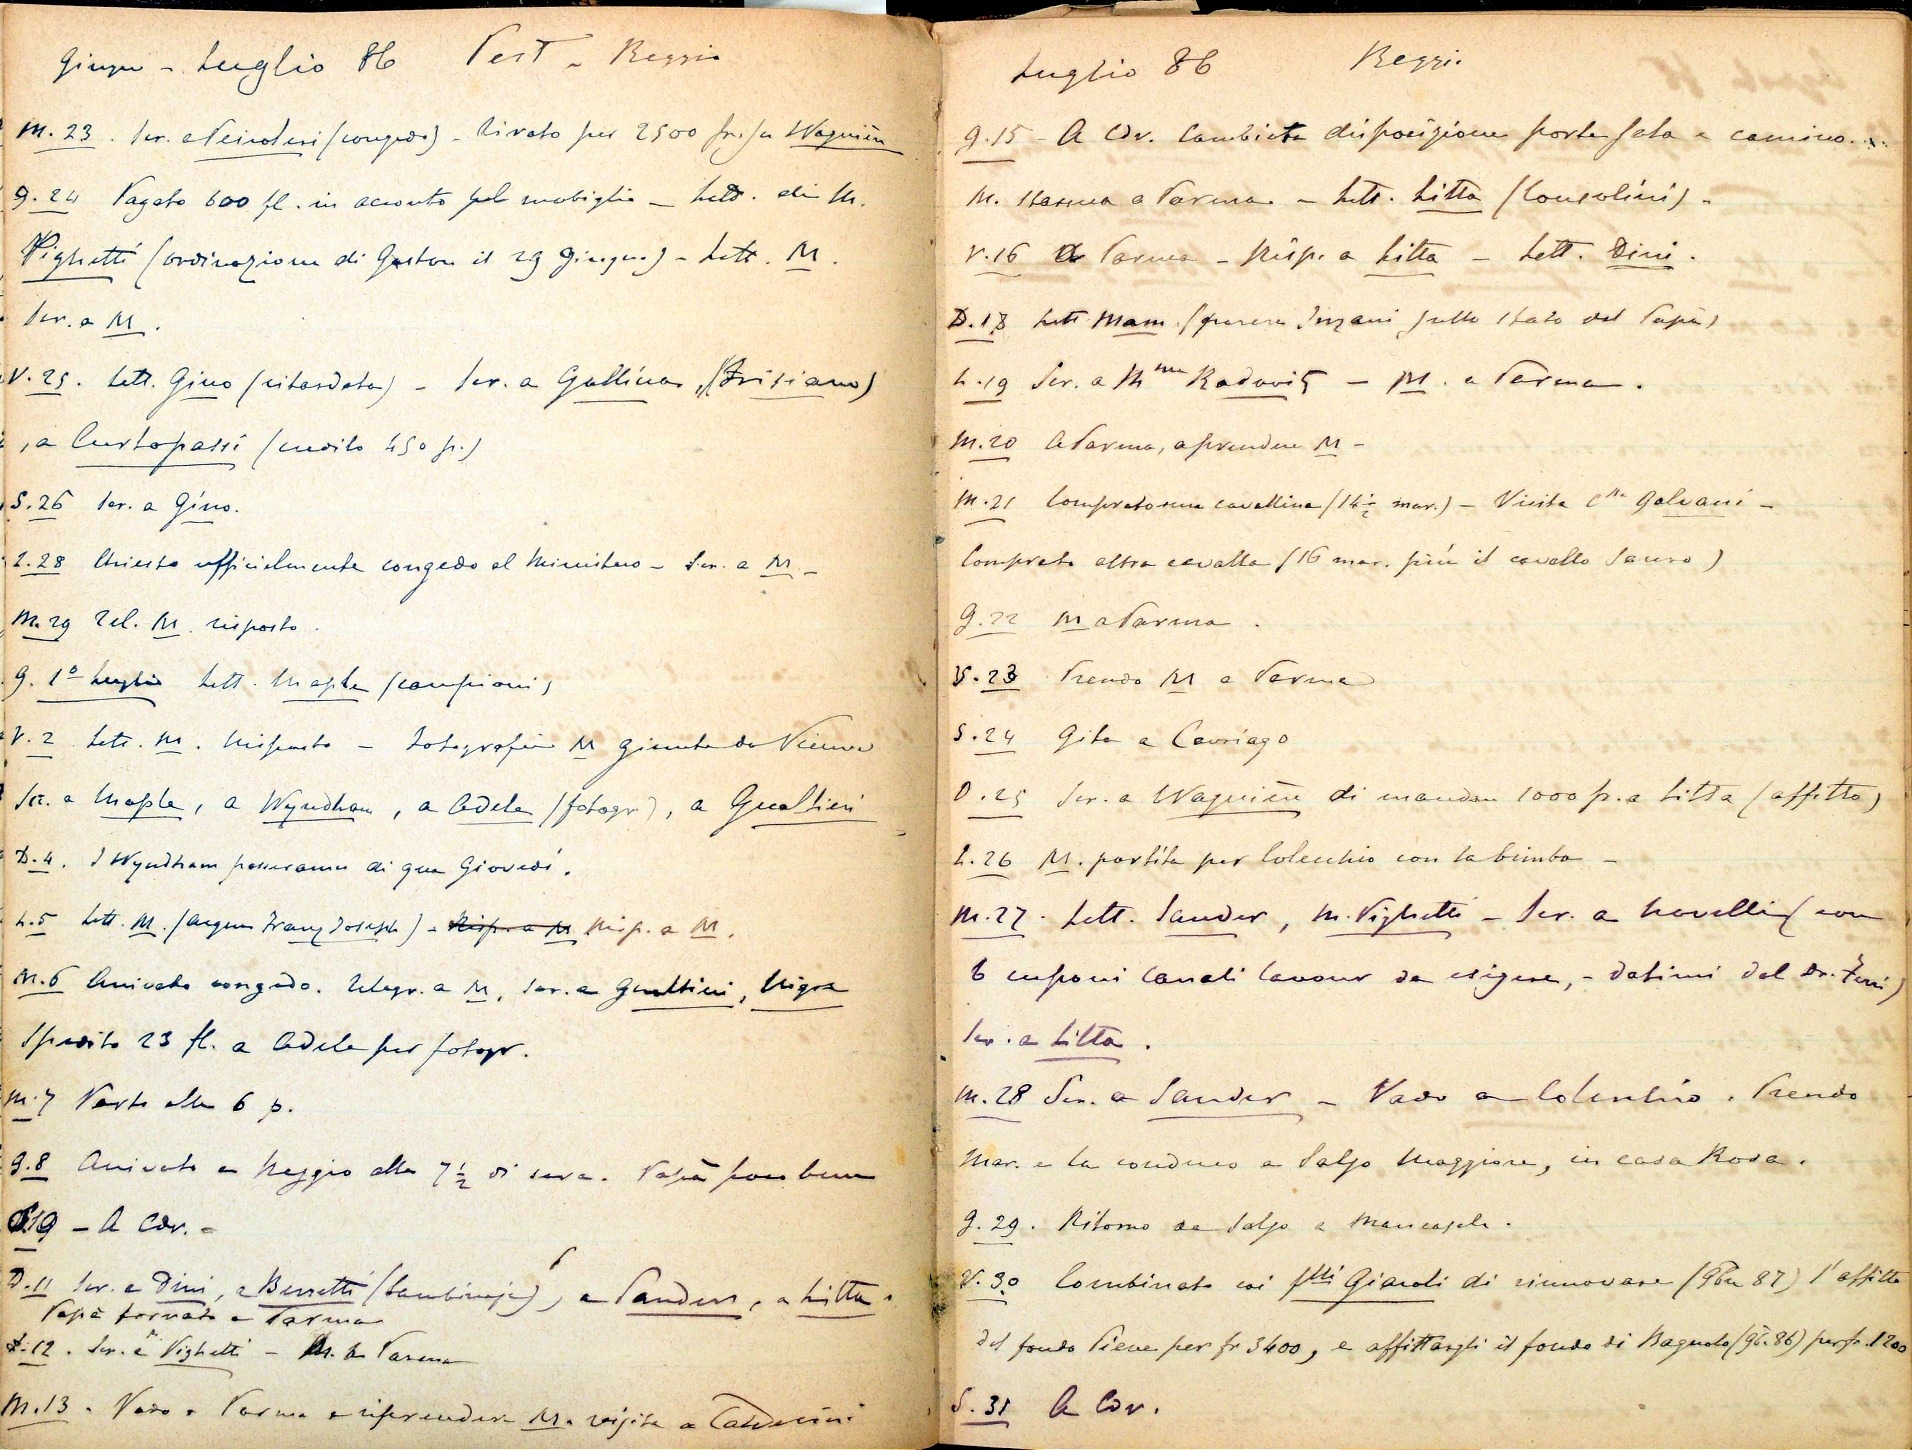 Giugno - Luglio 86 Pest - Reggio
M. 23. Scr. a (congedo) - tirato per 2500 fr. su Wagnière
G. 24 Pagato 600 fl. in acconto pel mobiglio - Lett. di M.
Vighetti (ordinazione di Gaston il 29 giugno) - Lett. M.
Scr. a M.
V. 25. Lett. Gino (ritardata) - Scr. a Gallina, (Frisiano)
, a Curtopassi (credito 450 fr.)
S. 26 Scr. a Gino.
L. 28 Chiesto ufficialmente congedo al Ministero - Scr. a M. -
M. 29 Tel. M. risposto.
G. 1º Luglio Lett. Maple (campioni)
V. 2 Lett. M. Risposto - Fotografie M giunte da Vienna
Scr. a Maple, a Wyndham, a Adele (fotogr.), a Gualtieri
D. 4. I Wyndham passeranno di qua Giovedì.
L. 5 Lett. M. (acqua Franz Joseph) - Risp. a M Risp. a M.
M. 6 Arrivato congedo. Telegr. a M, Scr. a Gualtieri, Nigra
Spedito 23 fl. a Adele per fotogr.
M. 7 Parto alle 6 p.
G. 8 Arrivato a Reggio alle 7 ½ di sera. Papà poco bene
19 - A Cav. -
D. 11 Scr. a Dini, a Berretti, a Sanders, a Litta.
Papà tornato a Parma
L. 12. Scr. a Vighetti - M. a Parma
M. 13. Vado a Parma a riprendere M. visita a
Luglio 86 Reggio
G. 15 - A Cav. Cambiata disposizione porte sala e camino...
M. a Parma. - Lett. Litta (Consolini) -
V. 16 A Parma - Risp. a Litta - Lett. Dini.
D. 18 Lett. Mam. (parere Inzani sullo stato del Papà)
L. 19 Scr. a Mme Radoviz - M. a Parma.
M. 20 A Parma, a prendere M -
M. 21 Comprato una cavallina (14 ½ mar.) - Visita Csa Galvani -
Comprato altra cavalla (16 mar. più il cavallo Sauro)
G. 22 M a Parma.
V. 23 Prendo M a Parma
S. 24 Gita a Cavriago
D. 25 Scr. a Wagnière di mandare 1000 fr. a Litta (affitto)
L. 26 M. partita per Colecchio con la bimba -
M. 27. Lett. Sander, M. Vighetti - Scr. a Novelli (con
6 cuponi Canali Cavour da esigere, - datimi dal Dr. Ferri)
Scr. a Litta.
M. 28 Scr. a Sander - Vado a Colecchio. Prendo
Mar. e la conduco a Salso Maggiore, in casa Rosa.
G. 29. Ritorno da Salso a Mancasale.
V. 30 Combinato coi flli Giaroli di rinnovare (9bre 87) l'affitto
del fondo Pieve per fr 3400, e affittargli il fondo di Bagnolo (9b. 86) per fr. 1200
S. 31 A Cav.